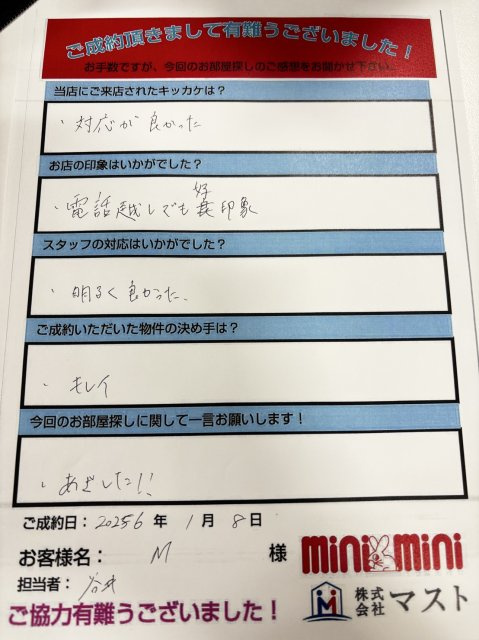 ご成約頂きまして有難うございました！
お手数ですが、今回のお部屋探しのご感想をお聞かせ下さい。
当店にご来店されたキッカケは？
・対応が良かった
お店の印象はいかがでした？
・電話越しでも好印象
スタッフの対応はいかがでした？
・明るく良かった。
ご成約いただいた物件の決め手は？
・キレイ
今回のお部屋探しに関して一言お願いします！
・あざした!!
ご成約日：20256年 1月 8日
お客様名： M 様
minimini
担当者：
株式会社マスト
ご協力有難うございました！